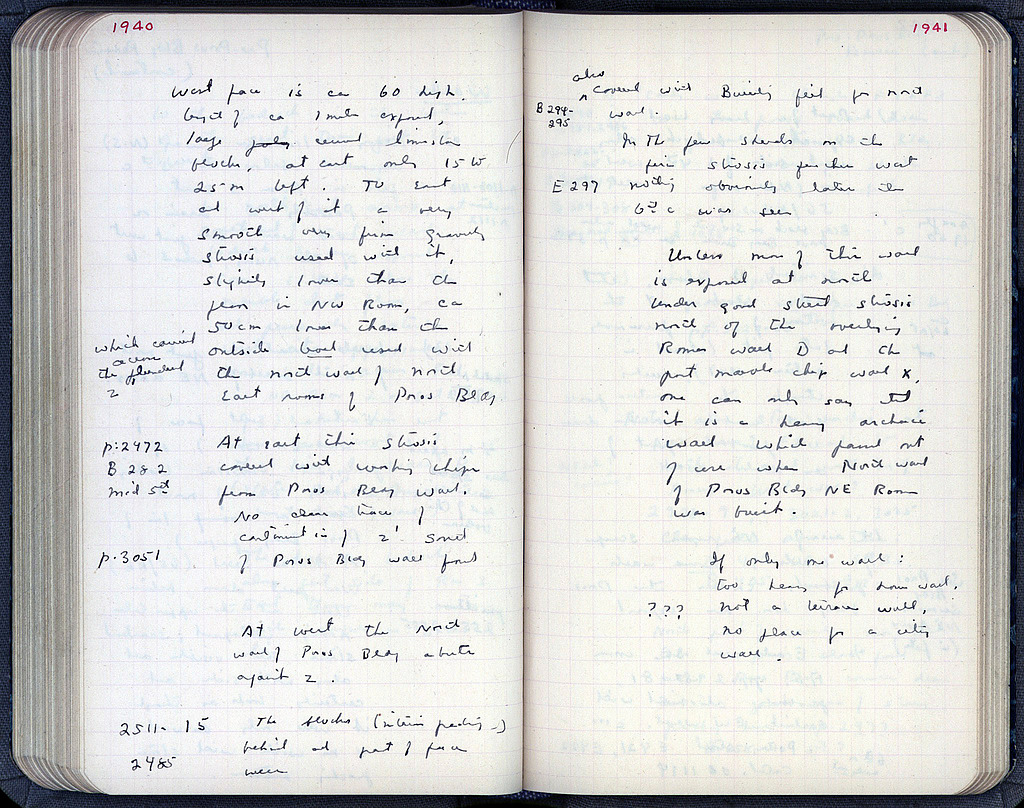 1940
West face is ca 60 high.
length of ca 1 meter exposed,
large poly limestone
blocks, at east only 15 to
25 m left. To East
and west of it a very
smooth very firm gravelly
stosis used with it,
slightly lower than the
floor in NW Room, ca
50 cm lower than the
which
outside used with
the
the north wall of North
2
East rooms of Poros Bldg.
p:2472
At east this stosis
B 282
covered with working chips
mid 5th
from Poros Bldg wall.
No clear trace of
continuation of 2 south
p.3051
of Poros Bldg wall found
At west the North
wall of Poros Bldg abuts
against 2.
2511-15
The blocks (interior packing -)
behind and part of face
2485
were
1941
also
covered with Building fill for north
B 294-
295
wall.
In the few sherds in the
firm stosis further west
E 297
nothing obviously later than
6th c was seen
Unless more of this wall
is exposed at north
under good street stosis
north of the overlying
Roman wall D and the
post marble chip wall X,
one can only say that
it is a heavy archaic
wall which passed out
of use when North wall
of Poros Bldg NE Room
was built.
If only one wall:
too heavy for house wall,
??? not a terrace wall,
no place for a city
wall.